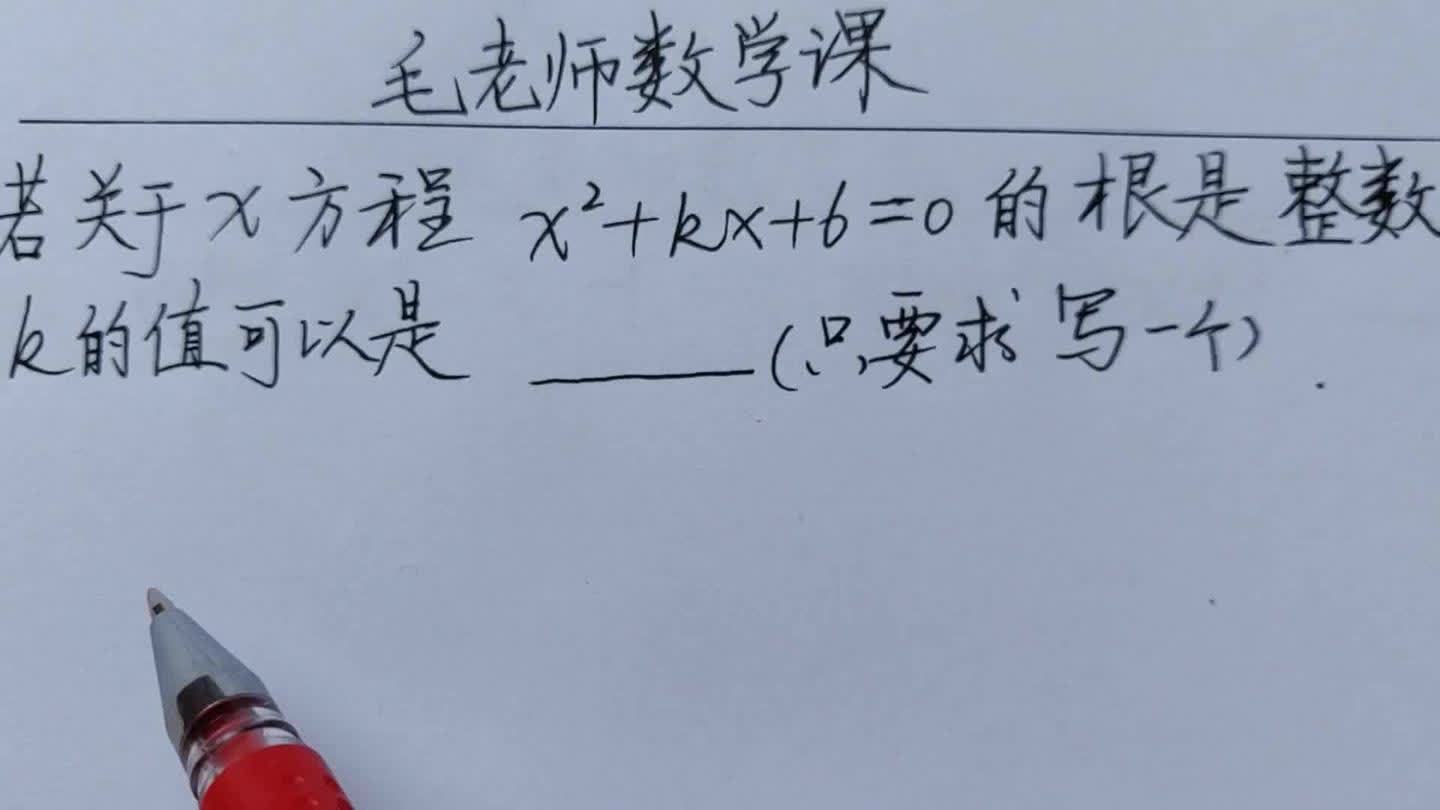 毛老师数学课
若关于x方程 x²+kx+6=0的根是整数
k的值可以是 ______(只要求写一个).